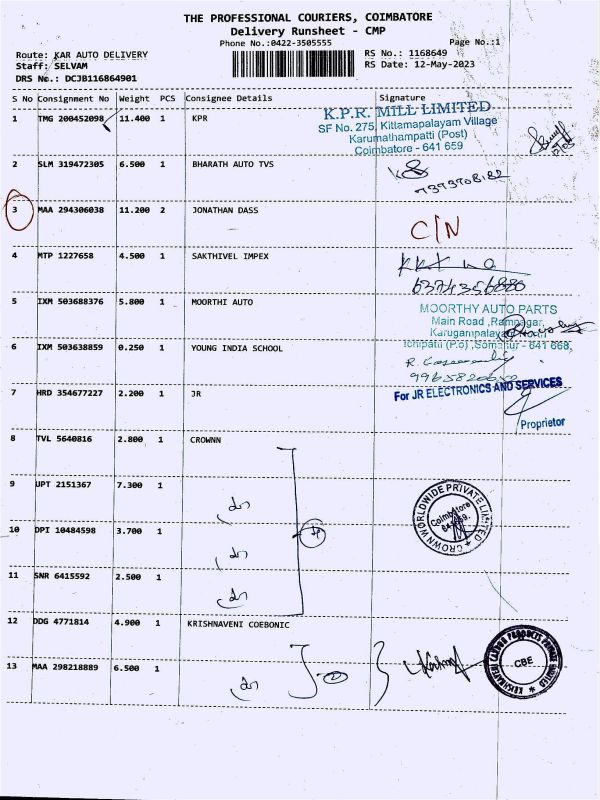 THE PROFESSIONAL COURIERS, COIMBATORE
Delivery Runsheet - CMP
Phone No.:0422-3505555 Page No.:1
Route: KAR AUTO DELIVERY RS No.: 1168649
Staff: SELVAM RS Date: 12-May-2023
DRS No.: DCJB116864901
S No Consignment No Weight PCS Consignee Details Signature
1 TMG 200452098 11.400 1 KPR
K.P.R. MILL LIMITED
SF No. 275, Kittamapalayam Village
Karumathampatti (Post)
Coimbatore - 641 659
2 SLM 319472305 6.500 1 BHARATH AUTO TVS
3 MAA 294306038 11.200 2 JONATHAN DASS
C/N
4 MTP 1227658 4.500 1 SAKTHIVEL IMPEX
5 IXM 503688376 5.800 1 MOORTHI AUTO
MOORTHY AUTO PARTS
Main Road, Ramnagar,
6 IXM 503638859 0.250 1 YOUNG INDIA SCHOOL
7 HRD 354677227 2.200 1 JR
For JR ELECTRONICS AND SERVICES
Proprietor
8 TVL 5640816 2.800 1 CROWNN
9 UPT 2151367 7.300 1
CROWN WORLDWIDE PRIVATE LIMITED
Coimbatore
10 DPI 10484598 3.700 1
4
11 SNR 6415592 2.500 1
12 DDG 4771814 4.900 1 KRISHNAVENI COEBONIC
13 MAA 298218889 6.500 1
CBE